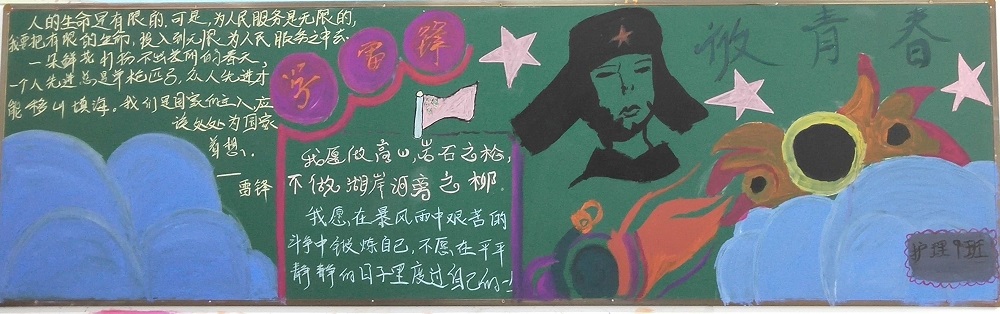 人的生命是有限的,可是,为人民服务是无限的,
我要把有限的生命,投入到无限为人民服务之中去.
一朵鲜花打扮不出美丽的春天,
一个人先进总是单枪匹马,众人先进才
能移山填海。我们是国家的主人,应
该处处为国家
着想。
——雷锋
学雷锋
我愿做高山岩石之松,
不做湖岸河旁之柳.
我愿在暴风雨中艰苦的
斗争中锻炼自己,不愿在平平
静静的日子里度过自己的一生
做青春
护理9班